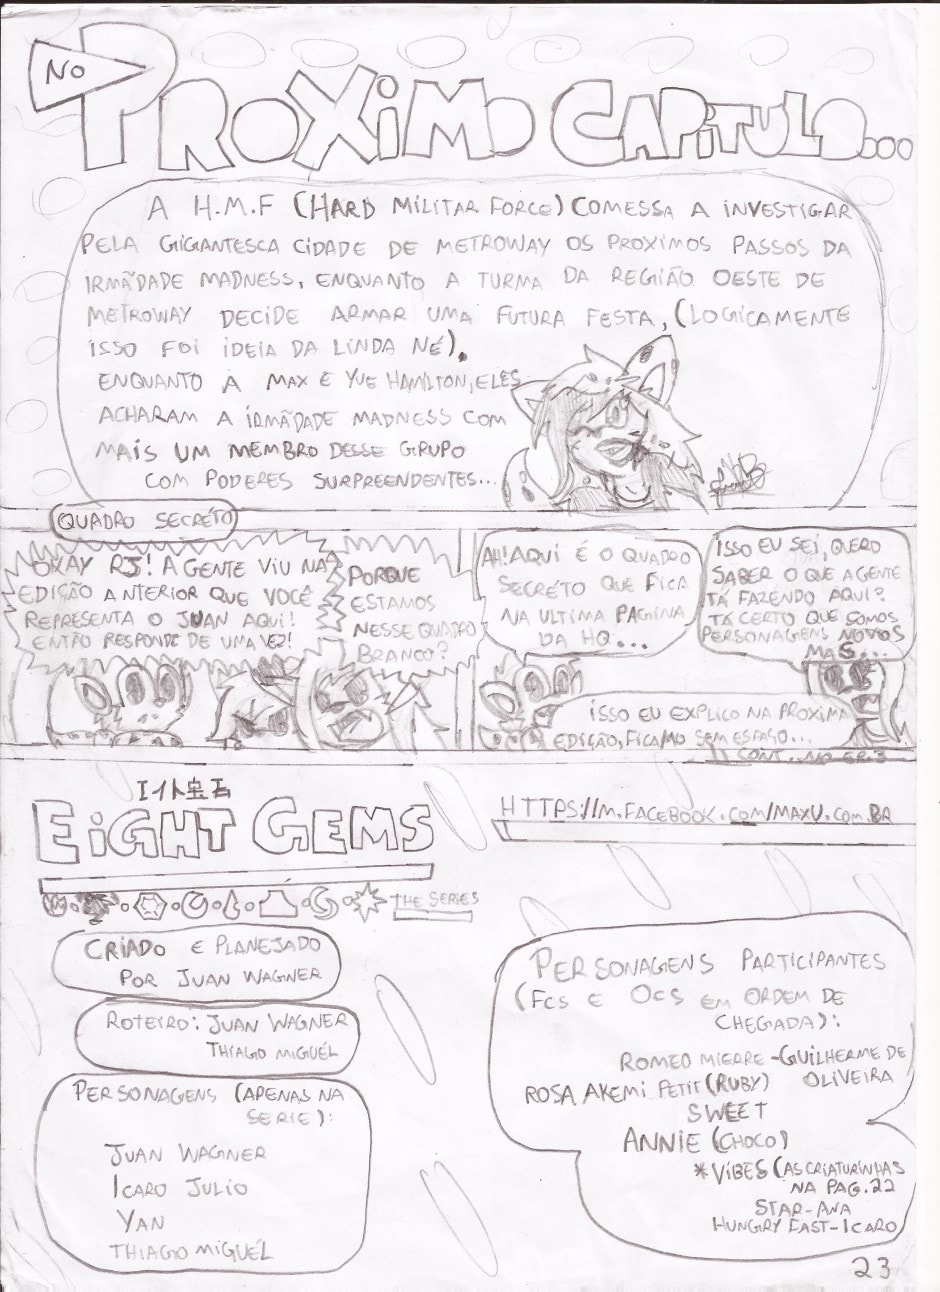 NO
PROXIMO CAPITULO...
A H.M.F (HARD MILITAR FORCE) COMESSA A INVESTIGAR
PELA GIGANTESCA CIDADE DE METROWAY OS PROXIMOS PASSOS DA
IRMÃDADE MADNESS, ENQUANTO A TURMA DA REGIÃO OESTE DE
METROWAY DECIDE ARMAR UMA FUTURA FESTA, (LOGICAMENTE
ISSO FOI IDEIA DA LINDA NÉ).
ENQUANTO A MAX E YUE HAMILTON, ELES
ACHARAM A IRMÃDADE MADNESS COM
MAIS UM MEMBRO DESSE GRUPO
COM PODERES SURPREENDENTES...
QUADRO SECRÉTO
OKAY RJ! A GENTE VIU NA
EDIÇÃO ANTERIOR QUE VOCÊ
REPRESENTA O JUAN AQUI!
ENTÃO RESPONDE DE UMA VEZ!
PORQUE
ESTAMOS
NESSE QUADRO
BRANCO?
AH! AQUI É O QUADRO
SECRÉTO QUE FICA
NA ULTIMA PAGINA
DA HQ...
ISSO EU SEI, QUERO
SABER O QUE A GENTE
TÁ FAZENDO AQUI?
TÁ CERTO QUE SOMOS
PERSONAGENS NOVOS
MAS...
ISSO EU EXPLICO NA PROXIMA
EDIÇÃO, FICAMO SEM ESPAÇO...
CONT. NO EP.3
エイト宝石
EIGHT GEMS
THE SERIES
HTTPS://M.FACEBOOK.COM/MAXU.COM.BR
CRIADO E PLANEJADO
POR JUAN WAGNER
ROTEIRO: JUAN WAGNER
THIAGO MIGUÉL
PERSONAGENS (APENAS NA
SERIE):
JUAN WAGNER
ICARO JULIO
YAN
THIAGO MIGUÉL
PERSONAGENS PARTICIPANTES
(FCS E OCS EM ORDEM DE
CHEGADA):
ROMEO MIERRE-GUILHERME DE
OLIVEIRA
ROSA AKEMI PETIT (RUBY)
SWEET
ANNIE (CHOCO)
*VIBES (AS CRIATURINHAS
NA PAG.22
STAR-ANA
HUNGRY EAST-ICARO
23